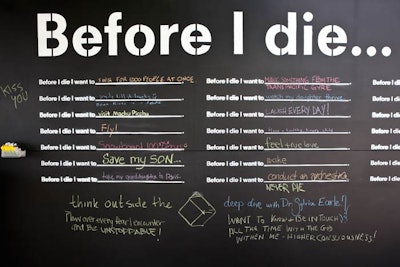 Before I die...
KISS YOU
Before I die I want to I WISH FOR 1000 PEOPLE AT ONCE
Before I die I want to
Before I die I want to visit Machu Picchu
Before I die I want to Fly!
Before I die I want to Snowboard
Before I die I want to Save my SON
Before I die I want to take my granddaughter to Paris
Before I die I want to MAKE SOMETHING FROM THE TRANSPACIFIC GYRE
Before I die I want to watch my daughter thrive
Before I die I want to LAUGH EVERY DAY!
Before I die I want to
Before I die I want to feel true love
Before I die I want to wake
Before I die I want to conduct an orchestra
NEVER DIE
Before I die I want
Before I die I want
Before I die I want
Before I die I want
Before I die I want
Before I die I want
Before I die I want
think outside the
Plow over every fear I encounter
and Be UNSTOPPABLE!
deep dive with Dr. Sylvia Earle!
I WANT TO KNOW & BE IN TOUCH
ALL THE TIME WITH THE GOD
WITHIN ME - HIGHER CONSCIOUSNESS!